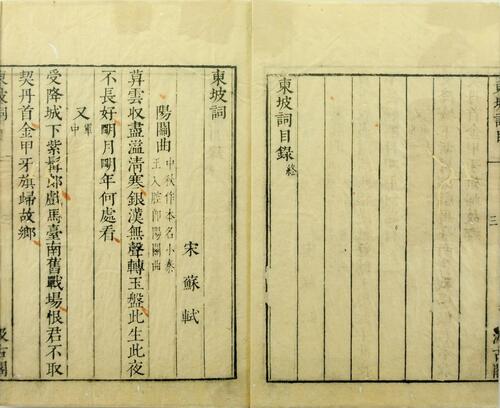 東坡詞目
三
汲古閣
東坡詞目錄終
東坡詞
宋 蘇軾
陽關曲 中秋作本名小秦
王入腔即陽關曲
暮雲收盡溢清寒銀漢無聲轉玉盤此生此夜
不長好明月明年何處看
又 軍中
受降城下紫髯郎戲馬臺南舊戰場恨君不取
契丹首金甲牙旗歸故鄉
東坡詞
汲古閣